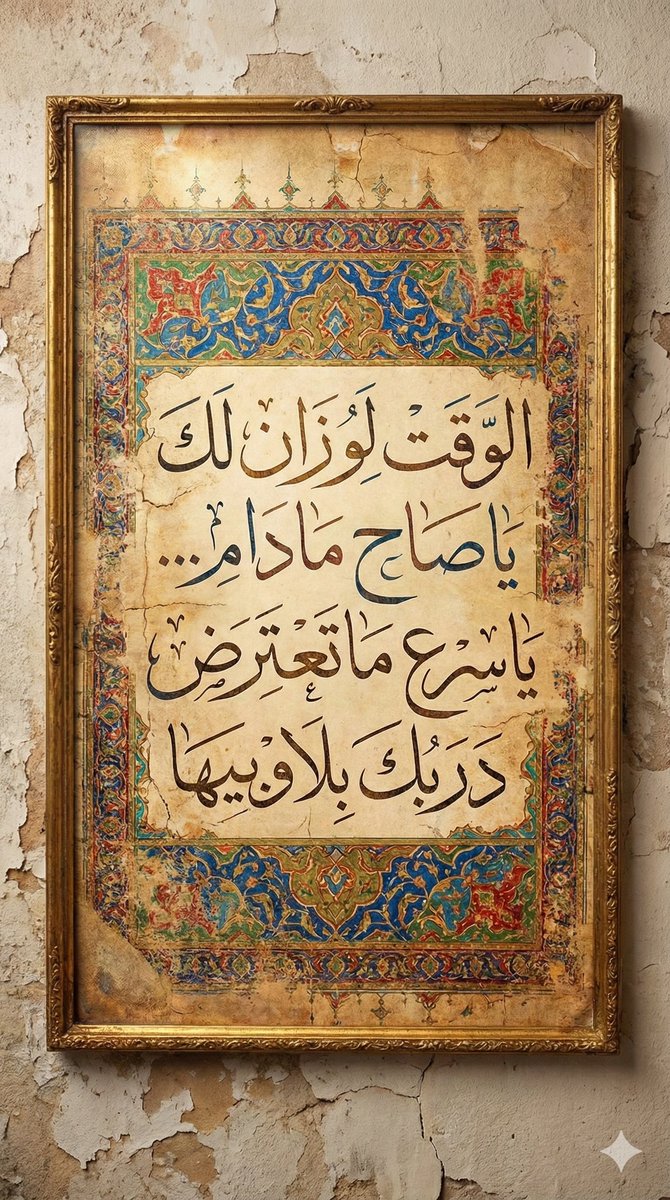 الْوَّقَتْ لَوُزَانْ لَكَ
يَاصَاحِ مَادَامِ...
يَاسْرِعْ مَاتَعْتَرِضْ
دَرَبُكَ بِلَاوْبِيهَا